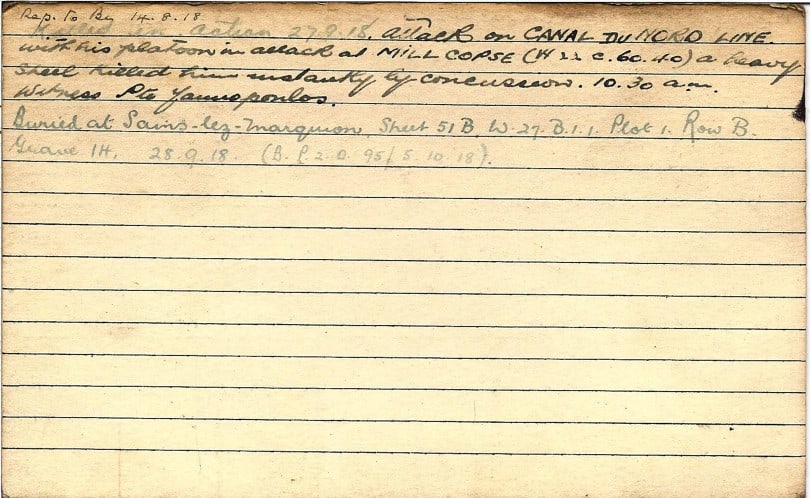 Rep. to By 14.8.18
Killed in action 27.9.18. attack on CANAL DU NORD LINE.
with his platoon in attack at MILL COPSE (W 22 c. 60.40) a heavy
shell killed him instantly by concussion. 10.30 a.m.
Witness Pte Yannopoulos.
Buried at Sains-lez-Marquion. Sheet 51B. W.27.B.1.1. Plot 1. Row B.
Grave 14. 28.9.18. (B.P.2.O. 95/5.10.18).